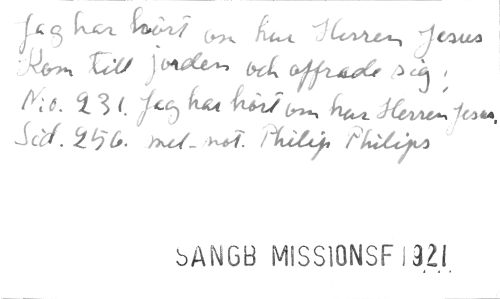 Jag har hört om hur Herren Jesus
Kom till jorden och offrade sig,
N:o. 231. Jag har hört om hur Herren Jesus.
Sid. 256. mel-not. Philip Philips
SANGB MISSIONSF 1921